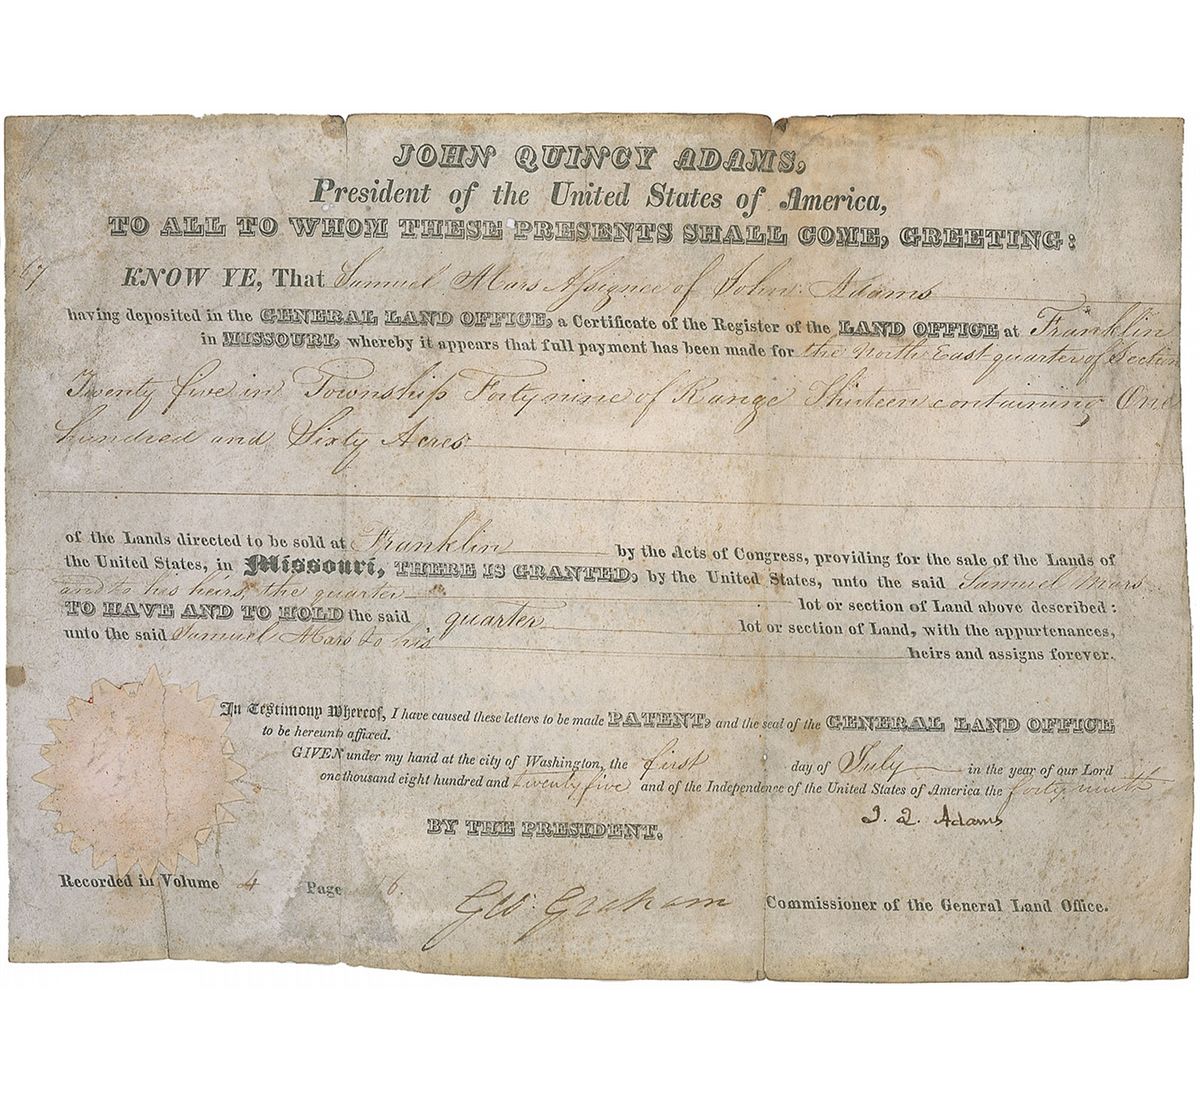 JOHN QUINCY ADAMS,
President of the United States of America,
TO ALL TO WHOM THESE PRESENTS SHALL COME, GREETING:
KNOW YE, That Samuel Mars Assignee of John Adams
having deposited in the GENERAL LAND OFFICE, a Certificate of the Register of the LAND OFFICE at Franklin
in MISSOURI, whereby it appears that full payment has been made for the North East quarter of Section
Twenty five in Township Forty nine of Range Thirteen containing One
hundred and Sixty Acres
of the Lands directed to be sold at Franklin by the Acts of Congress, providing for the sale of the Lands of
the United States, in Missouri, THERE IS GRANTED, by the United States, unto the said Samuel Mars
and to his heirs, the quarter lot or section of Land above described:
TO HAVE AND TO HOLD the said quarter lot or section of Land, with the appurtenances,
unto the said Samuel Mars to his heirs and assigns forever.
In Testimony Whereof, I have caused these letters to be made PATENT, and the seal of the GENERAL LAND OFFICE
to be hereunto affixed.
GIVEN under my hand at the city of Washington, the first day of July in the year of our Lord
one thousand eight hundred and twenty five and of the Independence of the United States of America the forty ninth
J. Q. Adams
BY THE PRESIDENT.
Recorded in Volume 4 Page
Geo: Graham Commissioner of the General Land Office.